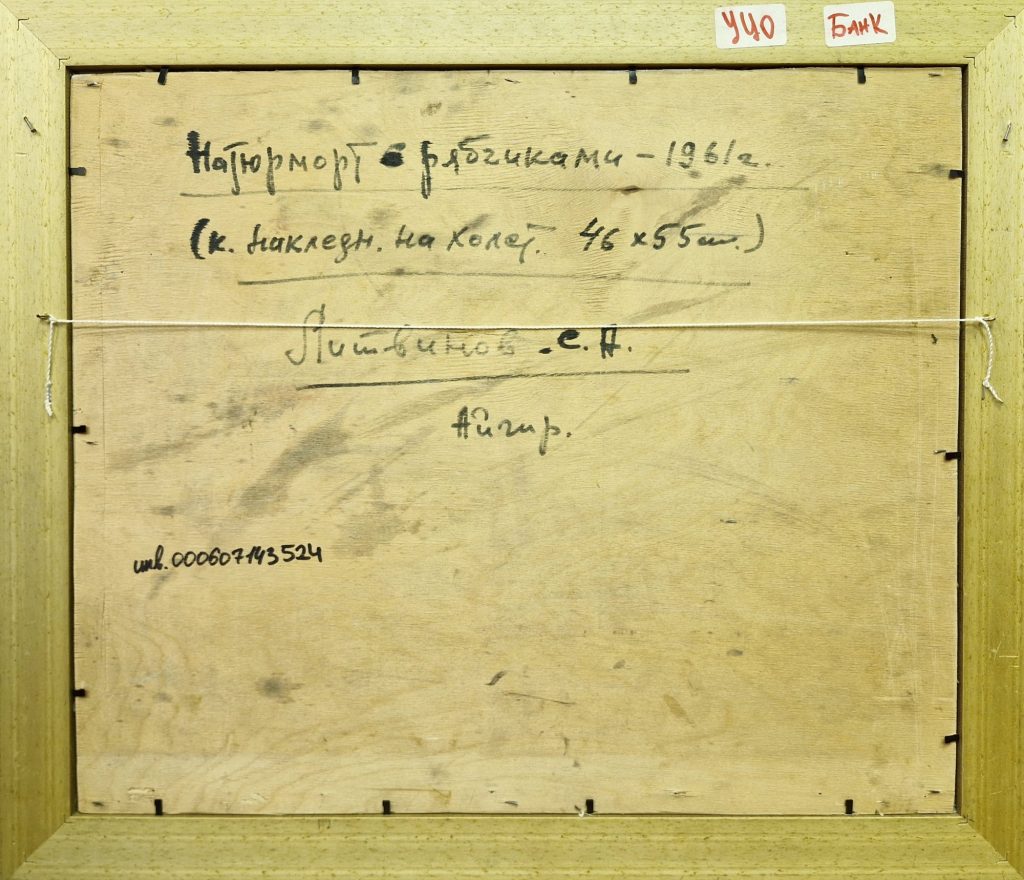 УЦО
БАНК
Натюрморт с рябчиками – 1961 г.
(к. накледн. на холст. 46 х 55 см.)
Литвинов С.А.
Айгир.
инв. 000607143524